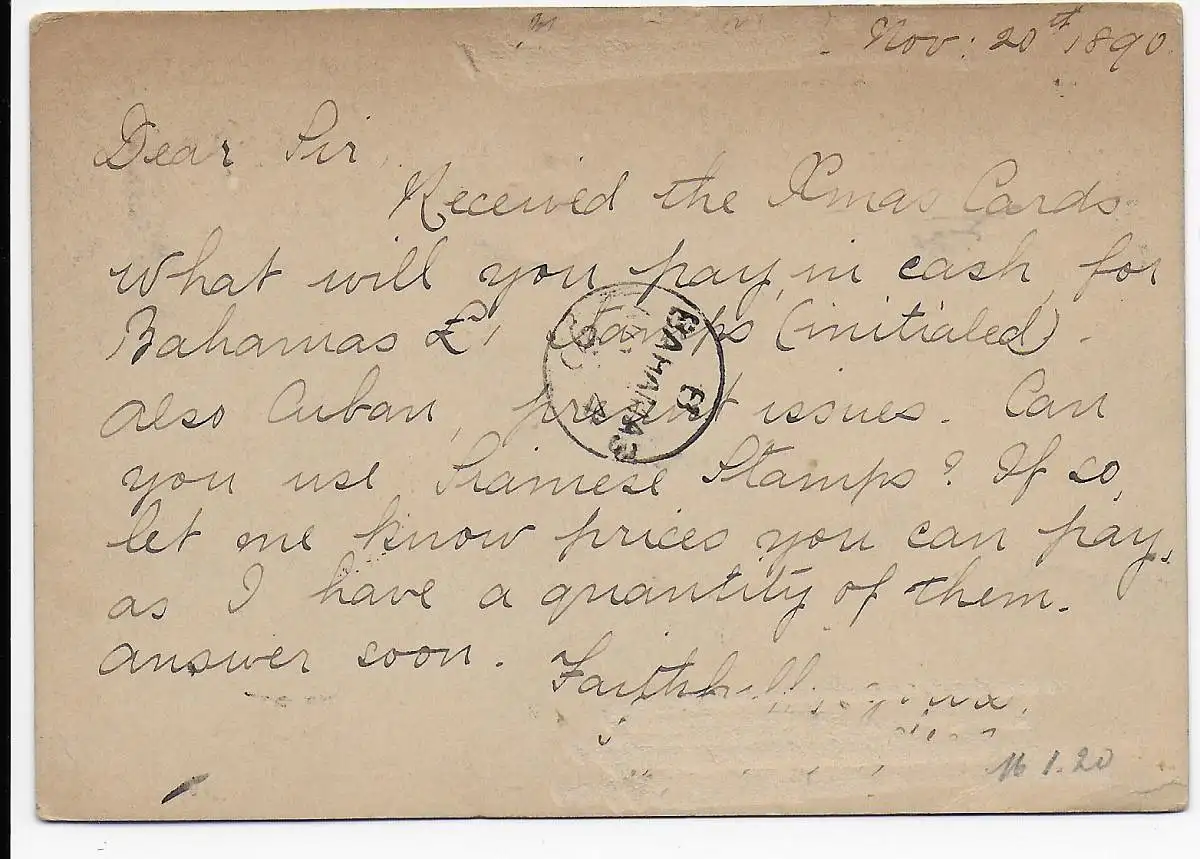 Nov. 20th 1890.
Dear Sir,
Received the Xmas Cards
what will you pay, in cash, for
Bahamas £1 stamps (initialed).
also Cuban, present issues. Can
you use Siamese Stamps? If so,
let me know prices you can pay,
as I have a quantity of them.
answer soon.
Faithfully yours
BAHAMAS
B
90
16 1.20